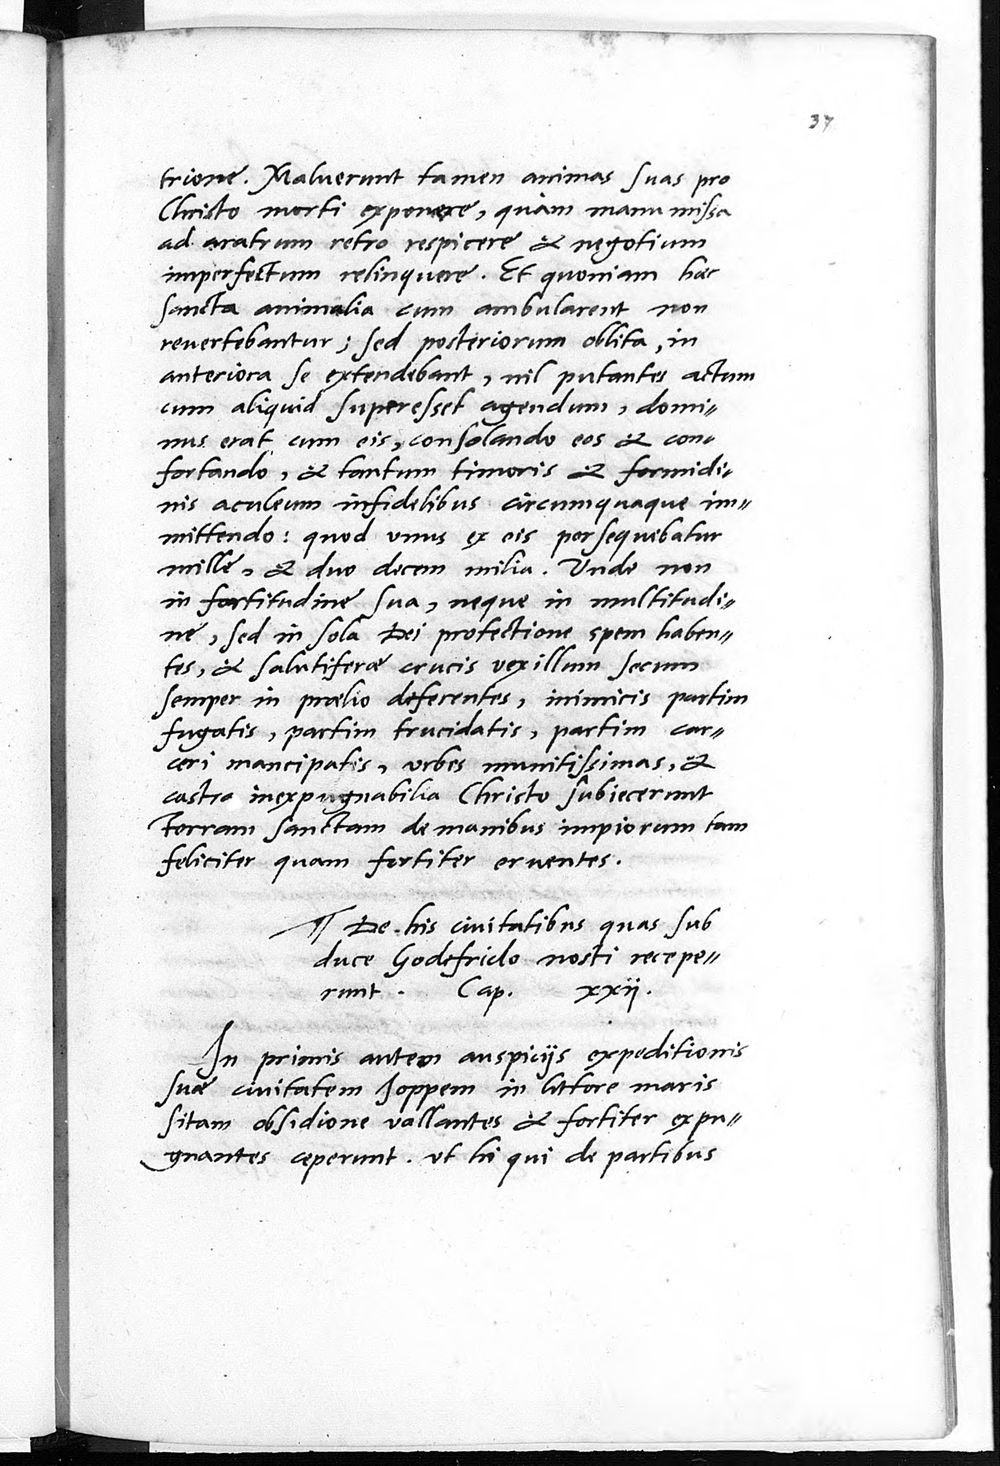 37
trione. Maluerunt tamen animas suas pro
Christo morti exponere, quàm manu missa
ad aratrum retro respicere & negotium
imperfectum relinquere. Et quoniam hæc
sancta animalia cum ambularent non
reuertebantur; sed posteriorum oblita, in
anteriora se extendebant, nil putantes actum
cum aliquid superesset agendum, domi〃
nus erat cum eis, consolando eos & con〃
fortando, & tantum timoris & formidi〃
nis aculeum infidelibus circumquaque im〃
mittendo: quod vnus ex eis persequibatur
mille, & duo decem milia. Unde non
in fortitudine sua, neque in multitudi〃
ne, sed in sola Dei protectione spem haben〃
tes, & salutiferæ crucis vexillum secum
semper in prælio deferentes, inimicis partim
fugatis, partim trucidatis, partim car〃
ceri mancipatis, vrbes munitissimas, &
castra inexpugnabilia Christo subiecerunt
Terram sanctam de manibus impiorum tam
feliciter quam fortiter eruentes.
¶ De his ciuitatibus quas sub
duce Godefrido nosti recepe〃
runt. Cap. xxij.
In primis autem auspicijs expeditionis
suæ ciuitatem Joppem in littore maris
sitam obsidione vallantes & fortiter expu〃
gnantes ceperunt. vt hi qui de partibus